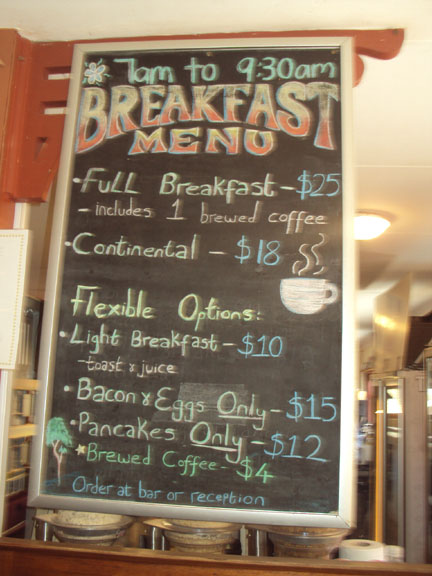 7am to 9:30am
BREAKFAST
MENU
• FULL Breakfast - $25
- includes 1 brewed coffee
• Continental - $18
Flexible Options:
• Light Breakfast - $10
- toast & juice
• Bacon & Eggs Only - $15
• Pancakes Only - $12
Brewed Coffee - $4
Order at bar or reception